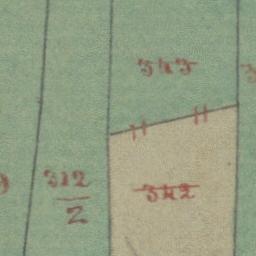 343
312
2
342